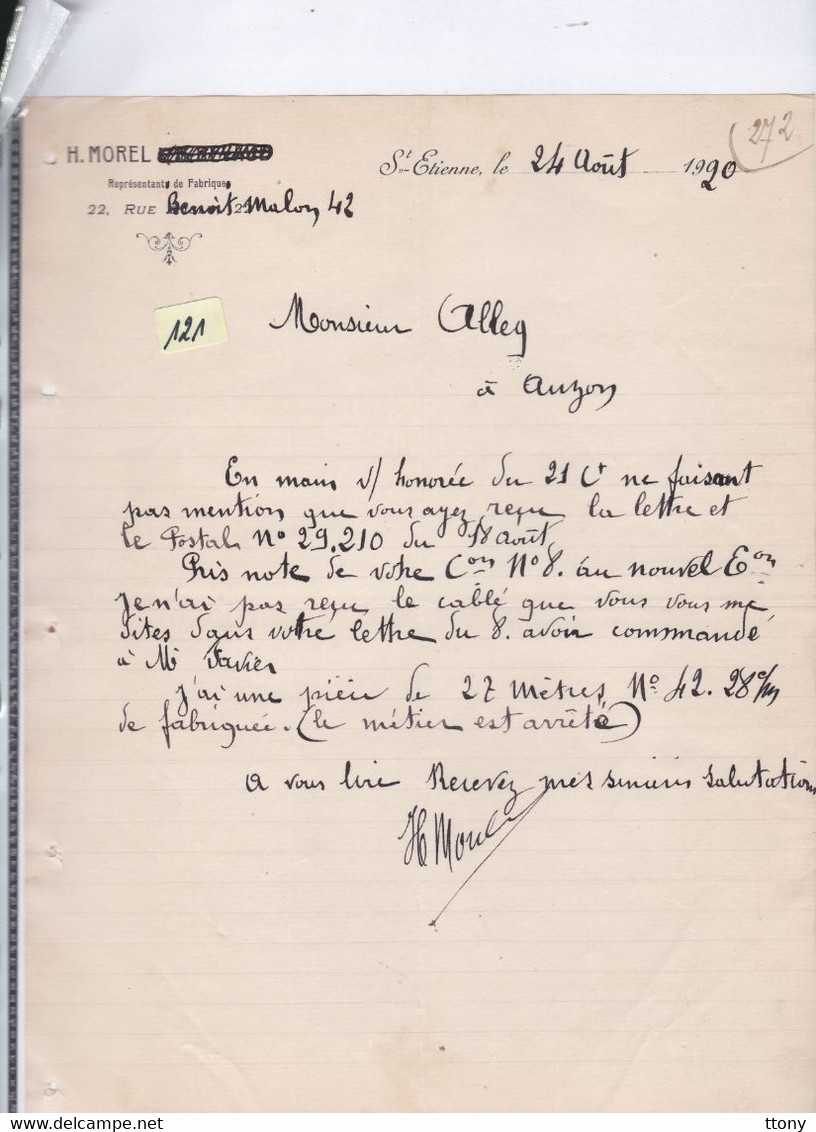 H. MOREL
St Etienne, le 24 Août 1920
272
Représentants de Fabriques
22, RUE Benoit Malon, 42
121
Monsieur Alleg
à Auzon
En main v/ honorée du 21 Ct ne faisant
pas mention que vous ayez reçu la lettre et
le Postal No 29.210 du 18 août
Pris note de votre Con No 8. au nouvel Eon
Je n'ai pas reçu le cablé que vous vous me
dites dans votre lettre du 8. avoir commandé
à Mr Favier
J'ai une pièce de 27 Mètres No 42. 28 c/m
de fabriquée. (le métier est arrêté)
A vous lire Recevez mes sincères salutations
H Morel
ttony